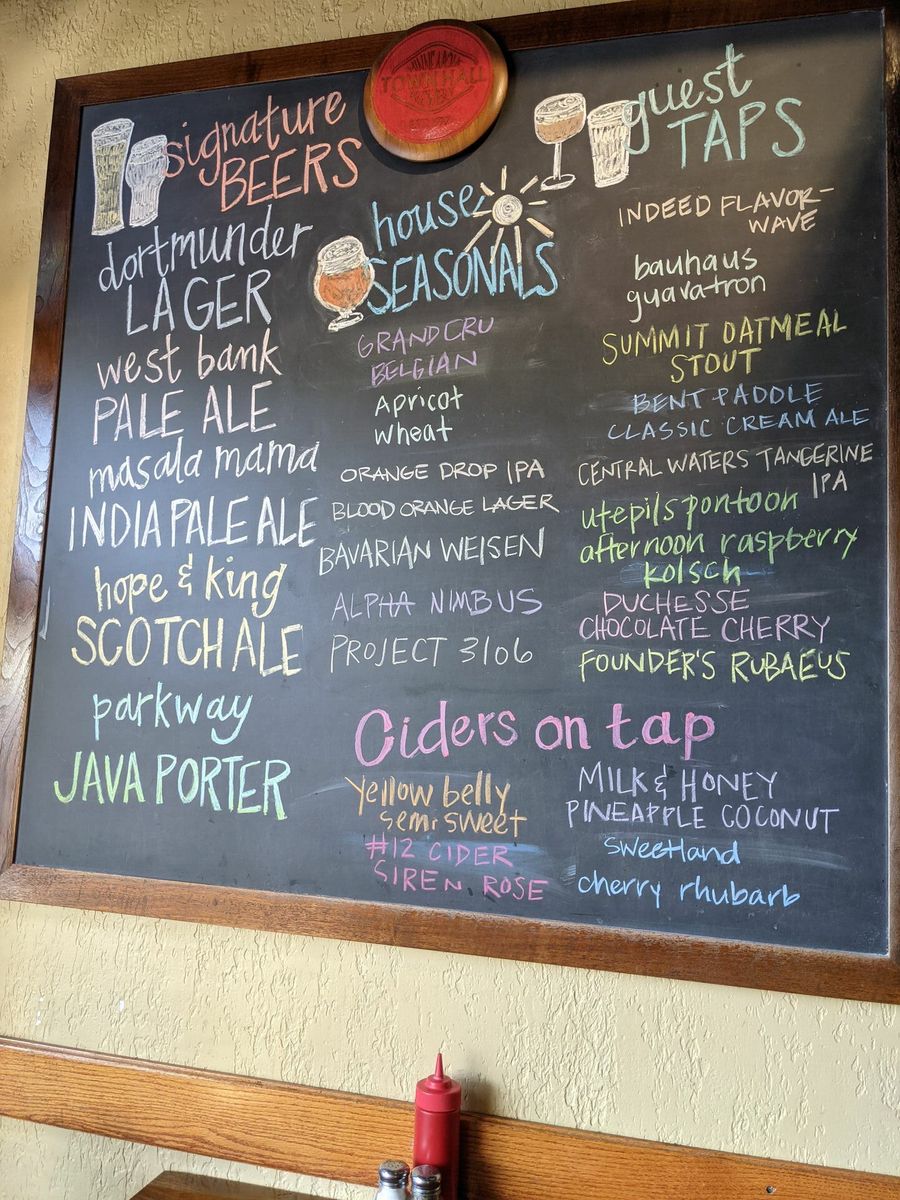 MINNEAPOLIS
TOWN HALL
BREWERY
signature
BEERS
dortmunder
LAGER
west bank
PALE ALE
masala mama
INDIA PALE ALE
hope & king
SCOTCH ALE
parkway
JAVA PORTER
house
SEASONALS
GRAND CRU
BELGIAN
Apricot
wheat
ORANGE DROP IPA
BLOOD ORANGE LAGER
BAVARIAN WEISEN
ALPHA NIMBUS
PROJECT 3106
guest
TAPS
INDEED FLAVOR-
WAVE
bauhaus
guavatron
SUMMIT OATMEAL
STOUT
BENT PADDLE
CLASSIC CREAM ALE
CENTRAL WATERS TANGERINE
IPA
utepils pontoon
afternoon raspberry
kolsch
DUCHESSE
CHOCOLATE CHERRY
FOUNDER'S RUBAEUS
Ciders on tap
Yellow belly
semi sweet
#12 CIDER
SIREN ROSE
MILK & HONEY
PINEAPPLE COCONUT
Sweetland
cherry rhubarb